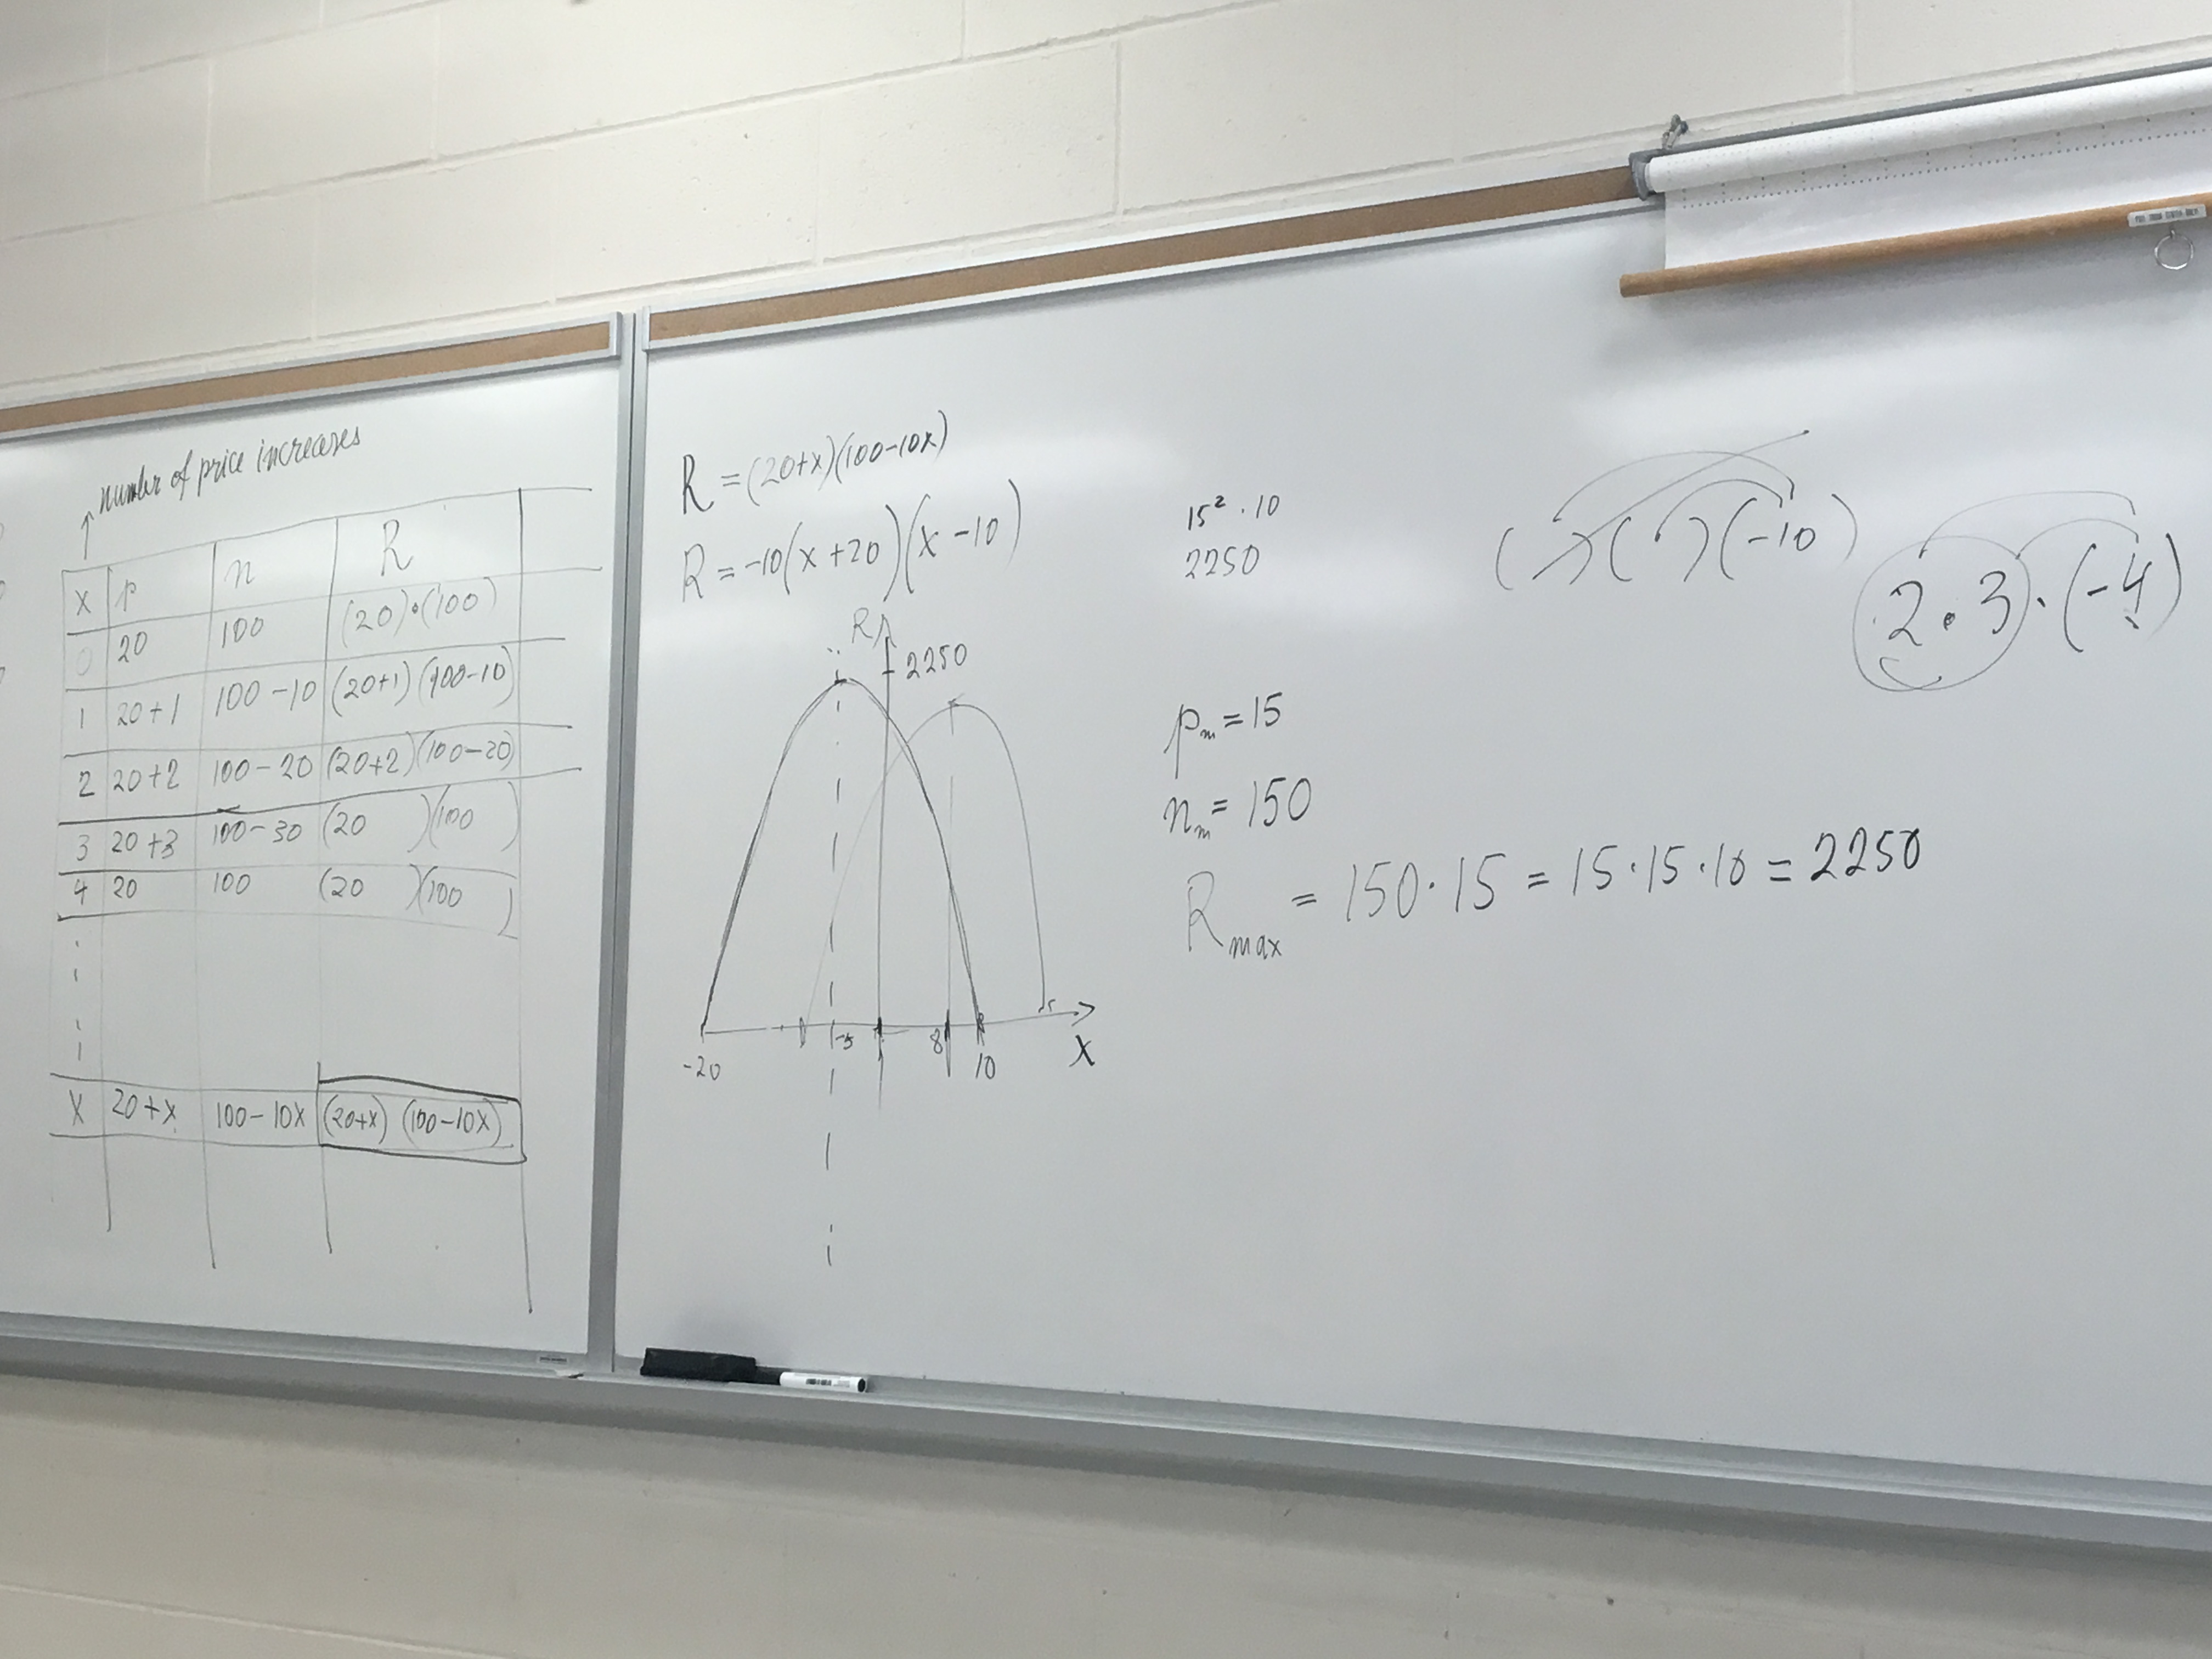 number of price increases
x p n R
0 20 100 (20)•(100)
1 20+1 100-10 (20+1)(100-10)
2 20+2 100-20 (20+2)(100-20)
3 20+3 100-30 (20 )(100 )
4 20 100 (20 )(100 )
X 20+x 100-10x (20+x) (100-10x)
R = (20+x)(100-10x)
R = -10(x+20)(x-10)
R
2250
-20 -5 8 10 X
15² · 10
2250
p_m = 15
n_m = 150
R_max = 150·15 = 15·15·10 = 2250
( )( )(-10)
2 • 3 · (-4)